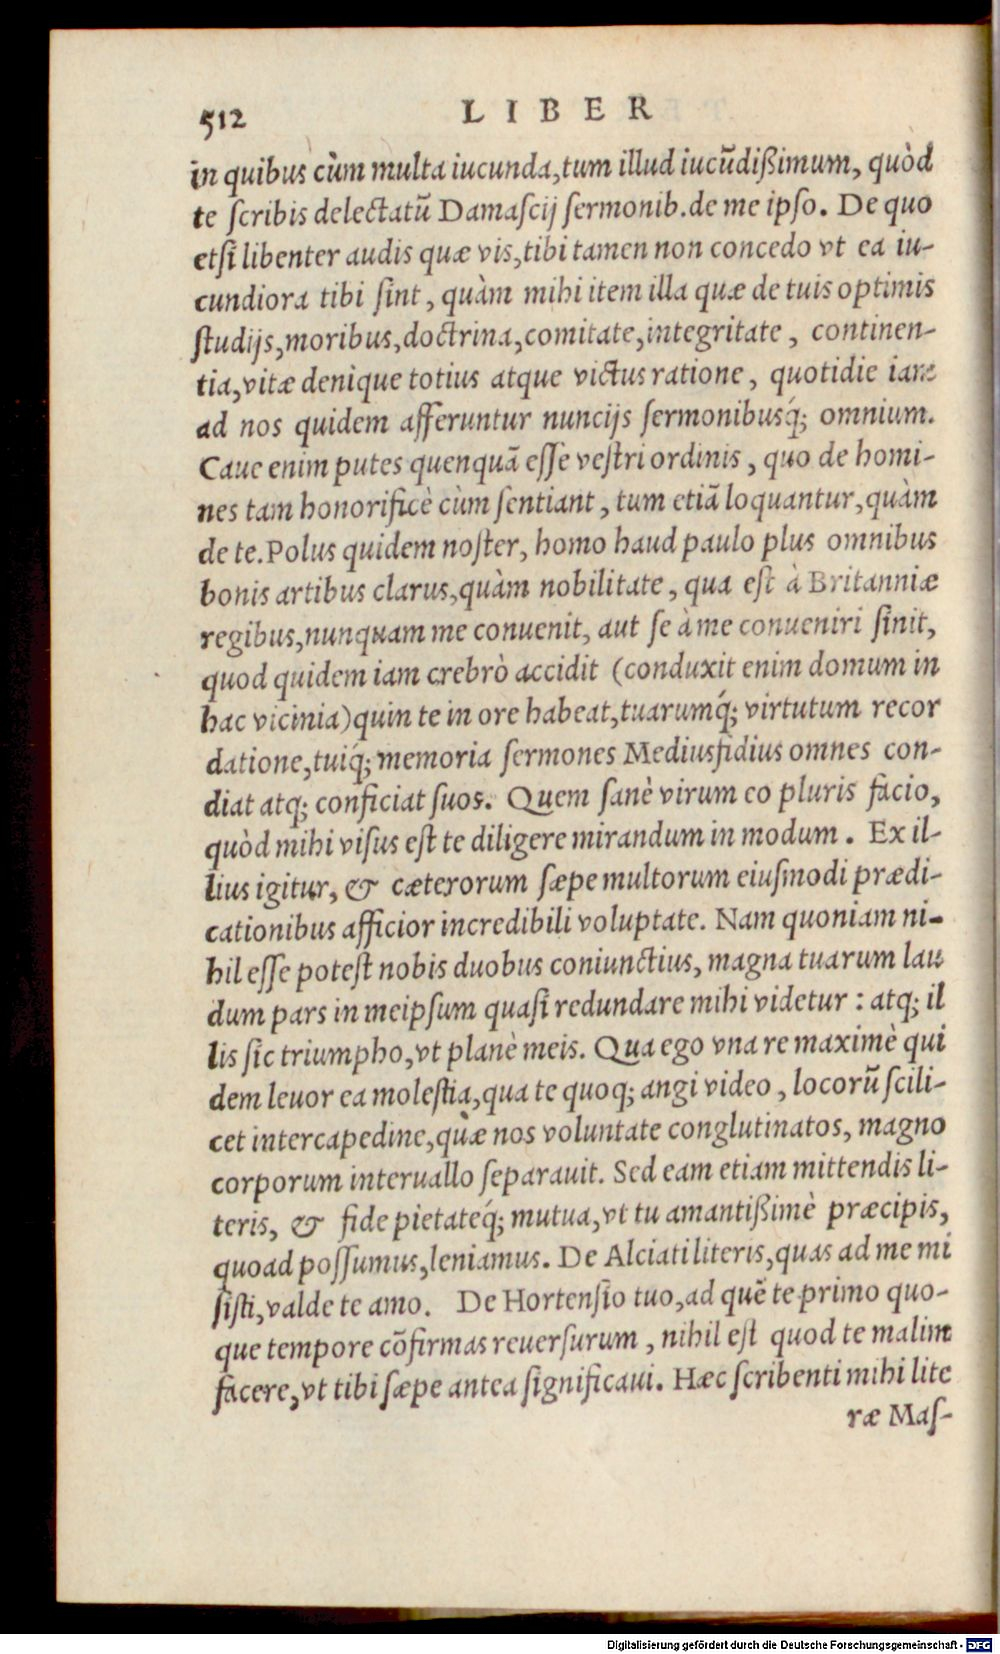 512 LIBER
in quibus cùm multa iucunda, tum illud iucũdißimum, quòd
te ſcribis delectatũ Damaſcij ſermonib. de me ipſo. De quo
etſi libenter audis quæ vis, tibi tamen non concedo vt ea iu-
cundiora tibi ſint, quàm mihi item illa quæ de tuis optimis
ſtudijs, moribus, doctrina, comitate, integritate, continen-
tia, vitæ denique totius atque victus ratione, quotidie iam
ad nos quidem afferuntur nuncijs ſermonibusq́; omnium.
Caue enim putes quenquã eſſe veſtri ordinis, quo de homi-
nes tam honorificè cùm ſentiant, tum etiã loquantur, quàm
de te. Polus quidem noſter, homo haud paulo plus omnibus
bonis artibus clarus, quàm nobilitate, qua eſt à Britanniæ
regibus, nunquam me conuenit, aut ſe à me conueniri ſinit,
quod quidem iam crebrò accidit (conduxit enim domum in
hac vicinia) quin te in ore habeat, tuarumq́; virtutum recor
datione, tuiq́; memoria ſermones Mediusfidius omnes con-
diat atq; conficiat ſuos. Quem ſanè virum eo pluris facio,
quòd mihi viſus eſt te diligere mirandum in modum. Ex il-
lius igitur, & cæterorum ſæpe multorum eiuſmodi prædi-
cationibus afficior incredibili voluptate. Nam quoniam ni-
hil eſſe poteſt nobis duobus coniunctius, magna tuarum lau
dum pars in meipſum quaſi redundare mihi videtur: atq; il
lis ſic triumpho, vt planè meis. Qua ego vna re maximè qui
dem leuor ea moleſtia, qua te quoq; angi video, locorũ ſcili-
cet intercapedine, quæ nos voluntate conglutinatos, magno
corporum interuallo ſeparauit. Sed eam etiam mittendis li-
teris, & fide pietateq́; mutua, vt tu amantißimè præcipis,
quoad poſſumus, leniamus. De Alciati literis, quas ad me mi
ſiſti, valde te amo. De Hortenſio tuo, ad quẽ te primo quo-
que tempore cõfirmas reuerſurum, nihil eſt quod te malim
facere, vt tibi ſæpe antea ſignificaui. Hæc ſcribenti mihi lite
ræ Maſ-
Digitalisierung gefördert durch die Deutsche Forschungsgemeinschaft - DFG